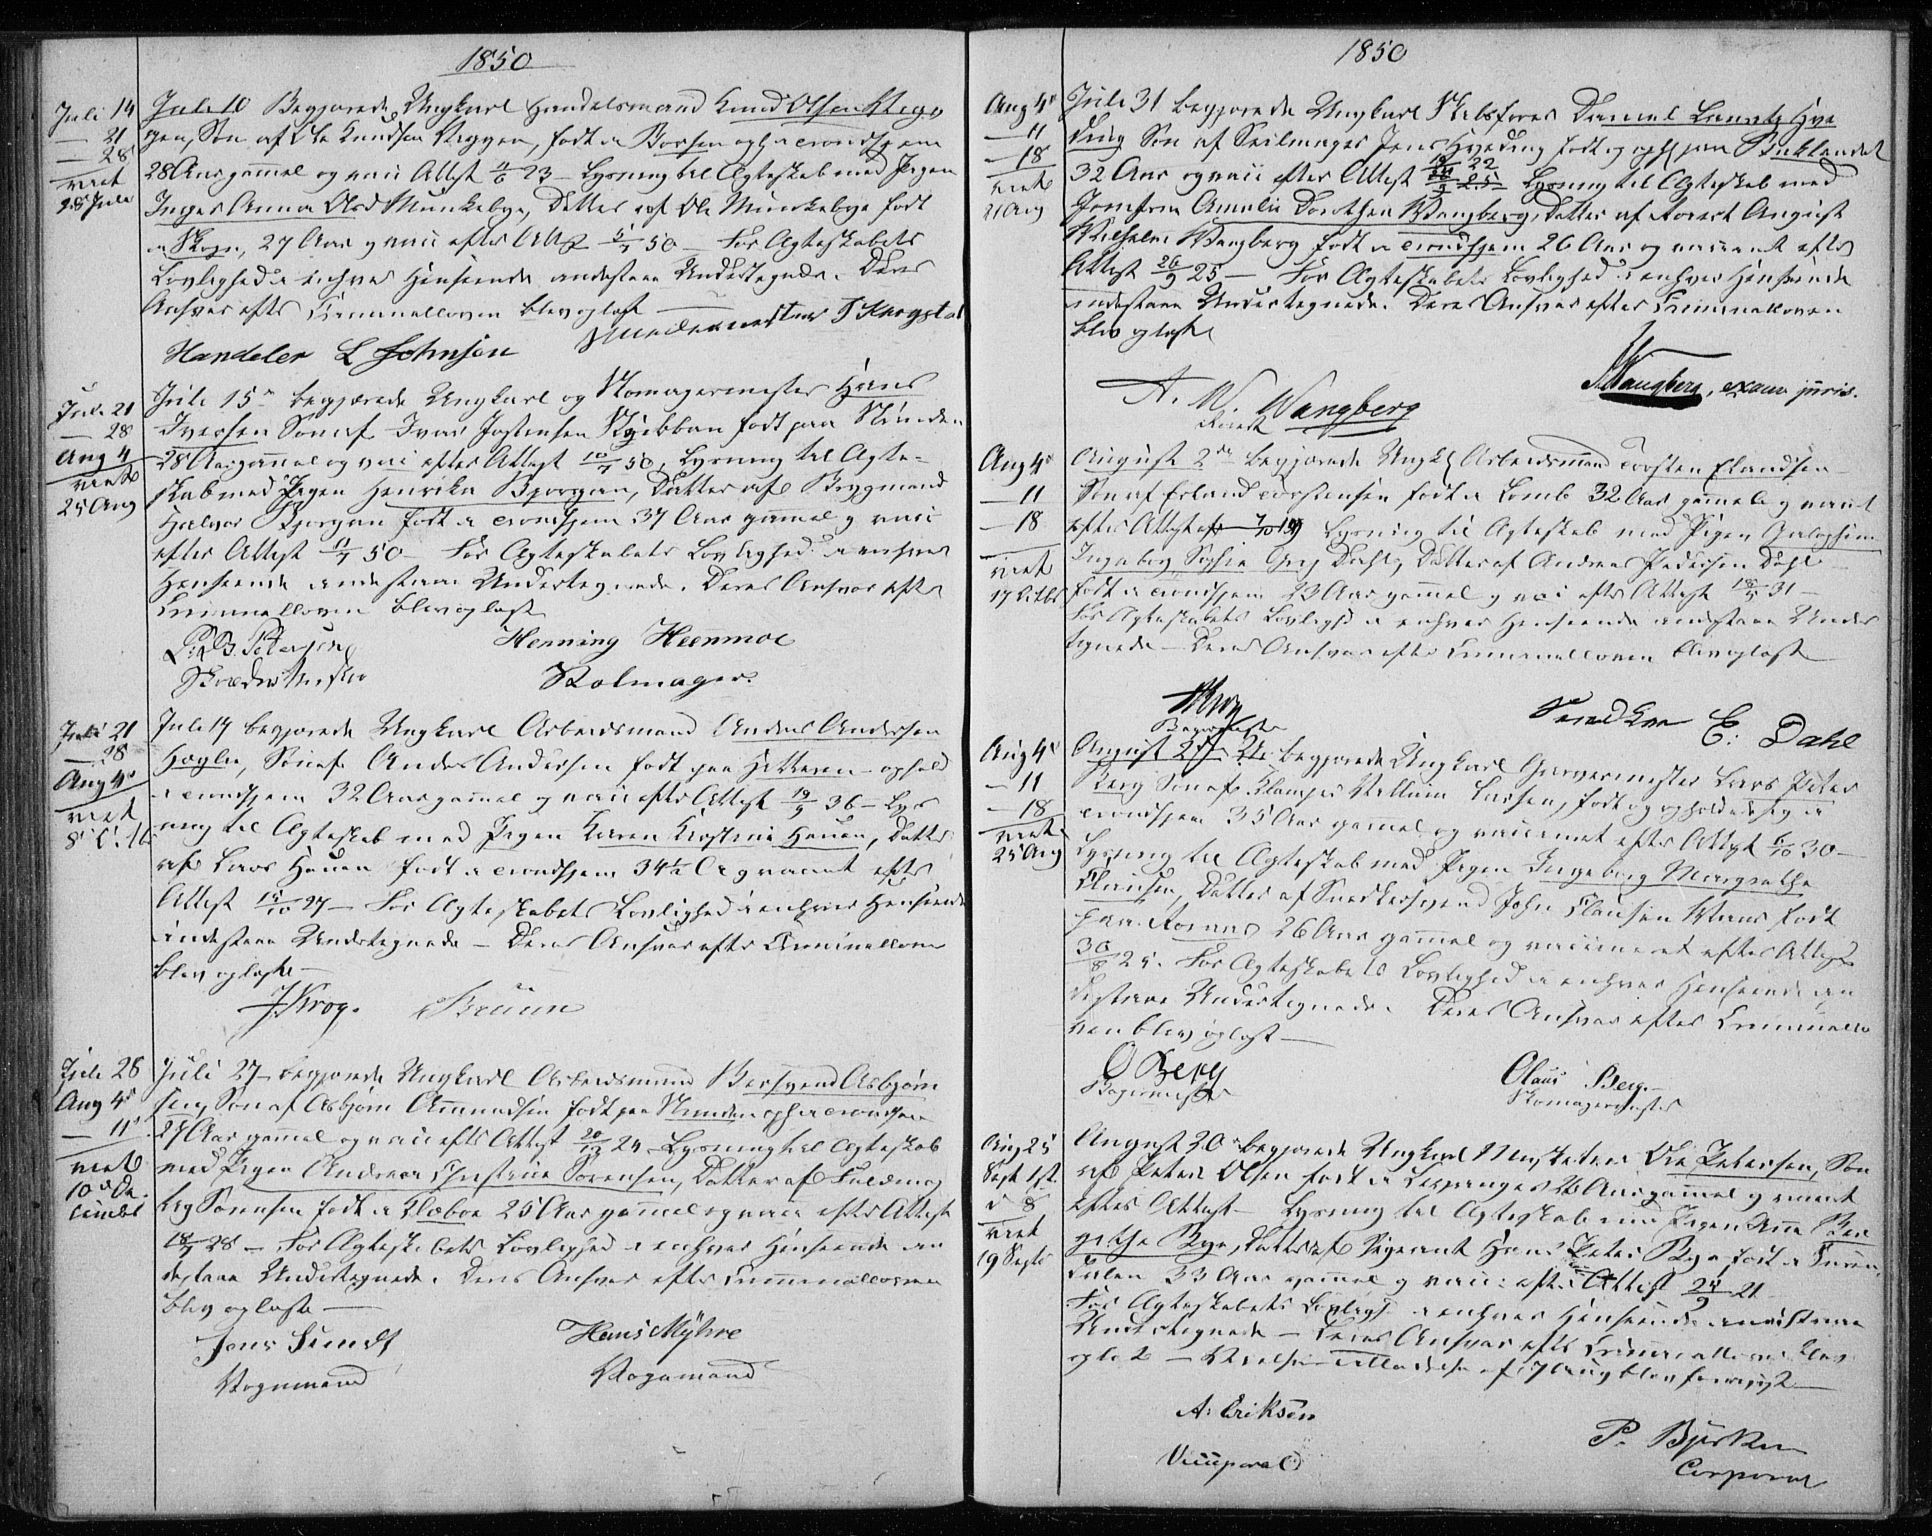 1850
Juli 14
— 21
— 28
viet
28 Juli
Juli 10 Begjærede Ungkarl Handelsmand Knud Olsen Vig
gen, Søn af Ole Knudsen Viggen, født i Børsen oph. i Trondhjem
28 Aar gammel og vacc Attest 23 – Lysning til Ægteskab med Pigen
Inger Anna Olsd Munkebye, Datter af Ole Munkebye født
i Skogn, 27 Aar og vacc efter Att 50 – For Ægteskabets
Lovlighed i enhver Henseende indestaae Undertegnede. Deres
Ansvar efter Criminalloven blev oplæst —
Handeler L Johnsen
Juli 21
— 28
Aug 4
viet
25 Aug
Juli 15 begjærede Ungkarl og Skomagermester Hans
Iversen Søn af Iver Jostensen født paa Strinden
28 Aar gammel og vacc efter Attest 10/7 50, Lysning til Ægte-
skab med Pigen Henrika Bjørgan, Datter af Brygmand
Halvor Bjørgan født i Trondhjem 37 Aar gammel og vacc
efter Attest 11/7 50 – For Ægteskabets Lovlighed i enhver
Henseende indestaae Undertegnede. Deres Ansvar efter
Criminalloven blev oplæst
B. Petersen
Skrædermester
Henning Heenmoe
Skomager
Juli 21
— 28
Aug 4
viet
8
Juli 17 begjærede Ungkarl Arbeidsmand Anders Andersen
Høglie, Søn af Anders Andersen født paa Hitteren – ophold
i Trondhjem 32 Aar gammel og vacc efter Attest 36 – Lys
ning til Ægteskab med Pigen Karen Kirstine Hauan, Datter
af Lars Hauan født i Trondhjem 34½ Aar og vaccent efter
Attest 27 – For Ægteskabets Lovlighed i enhver Henseende
indestaae Undertegnede – Deres Ansvar efter Criminalloven
blev oplæst –
J. Krog. Bruun
Juli 28
Aug 4
— 11
viet
10 De
cember
Juli 27 begjærede Ungkarl Arbeidsmand Bersvend Asbjørn
sen, Søn af Asbjørn Amundsen født paa Strinden oph i Trondhjem
27 Aar gammel og vacc efter Attest 24 Lysning til Ægteskab
med Pigen Andrea Christine Sørensen, Datter af
Sørensen født i Klæboe 25 Aar gammel og vacc efter Attest
28 – For Ægteskabets Lovlighed i enhver Henseende in
destaae Undertegnede. Deres Ansvar efter Criminalloven
blev oplæst —
Jens Sundt
Vognmand
Hans Myhre
Vognmand
1850
Aug 4
— 11
— 18
viet
21 Aug
Juli 31 begjærede Ungkarl Skibsfører Daniel Lorentz Hve
ding Søn af Seilmager Jens Hveding født og oph paa Baklandet
32 Aar og vacc efter Attest Lysning til Ægteskab med
Jomfrue Amalie Dorothea Wangberg, Datter af August
Wilhelm Wangberg født i Trondhjem 26 Aar og vaccinert efter
Attest 26/9 25 – For Ægteskabets Lovlighed i enhver Henseende
indestaae Undertegnede. Deres Ansvar efter Criminalloven
blev oplæst
A. W. Wangberg
Wangberg, exam. juris.
Aug 4
— 11
— 18
viet
17
August 2 begjærede Ungk Arbeidsmand Torsten Erlandsen
Søn af Erland Torstensen født i Lomb 32 Aar gammel og vaccint
efter Attest 7/10 19 Lysning til Ægteskab med Pigen
Ingeborg Sophie Dahl, Datter af Andreas Pedersen Dahl
født i Trondhjem 23 Aar gammel og vacc efter Attest 31 –
For Ægteskabets Lovlighed i enhver Henseende indestaae Under
tegnede – Deres Ansvar efter Criminalloven blev oplæst
E. Dahl
Aug 4
— 11
— 18
viet
25 Aug
August 2 begjærede Ungkarl Garvermester Lars Peter
Berg Søn af Klamper Larsen, født og opholder sig i
Trondhjem 35 Aar gammel og vaccinert efter Attest 6/10 30 –
Lysning til Ægteskab med Pigen Ingeborg Margrethe
Clausen, Datter af Snedkersvend John Clausen født
paa 26 Aar gammel og vaccineret efter Attest
30/8 25. For Ægteskabets Lovlighed i enhver Henseende in
destaae Undertegnede. Deres Ansvar efter Criminallo
ven blev oplæst —
O Berg
Bagermester
Claus Berg
Skomagermester
Aug 25
Sept 1
d 8
viet
19 Septr
August 20 begjærede Ungkarl Musketer Ole Petersen, Søn
af Peter Olsen født i Levanger Aar gammel og vaccint
efter Attest – Lysning til Ægteskab med Pigen Anna
Rye, Datter af Sergeant Hans Peter Rye født i
33 Aar gammel og vacc: efter Attest 24/9 21
For Ægteskabets Lovligh i enhver Henseende indestaae
Undertegnede – Deres Ansvar efter Criminalloven blev
oplæst – Tilladelse af 17 Aug blev foreviist —
A. Eriksen
Vicecorporal
P. Bjerkan
Corporal